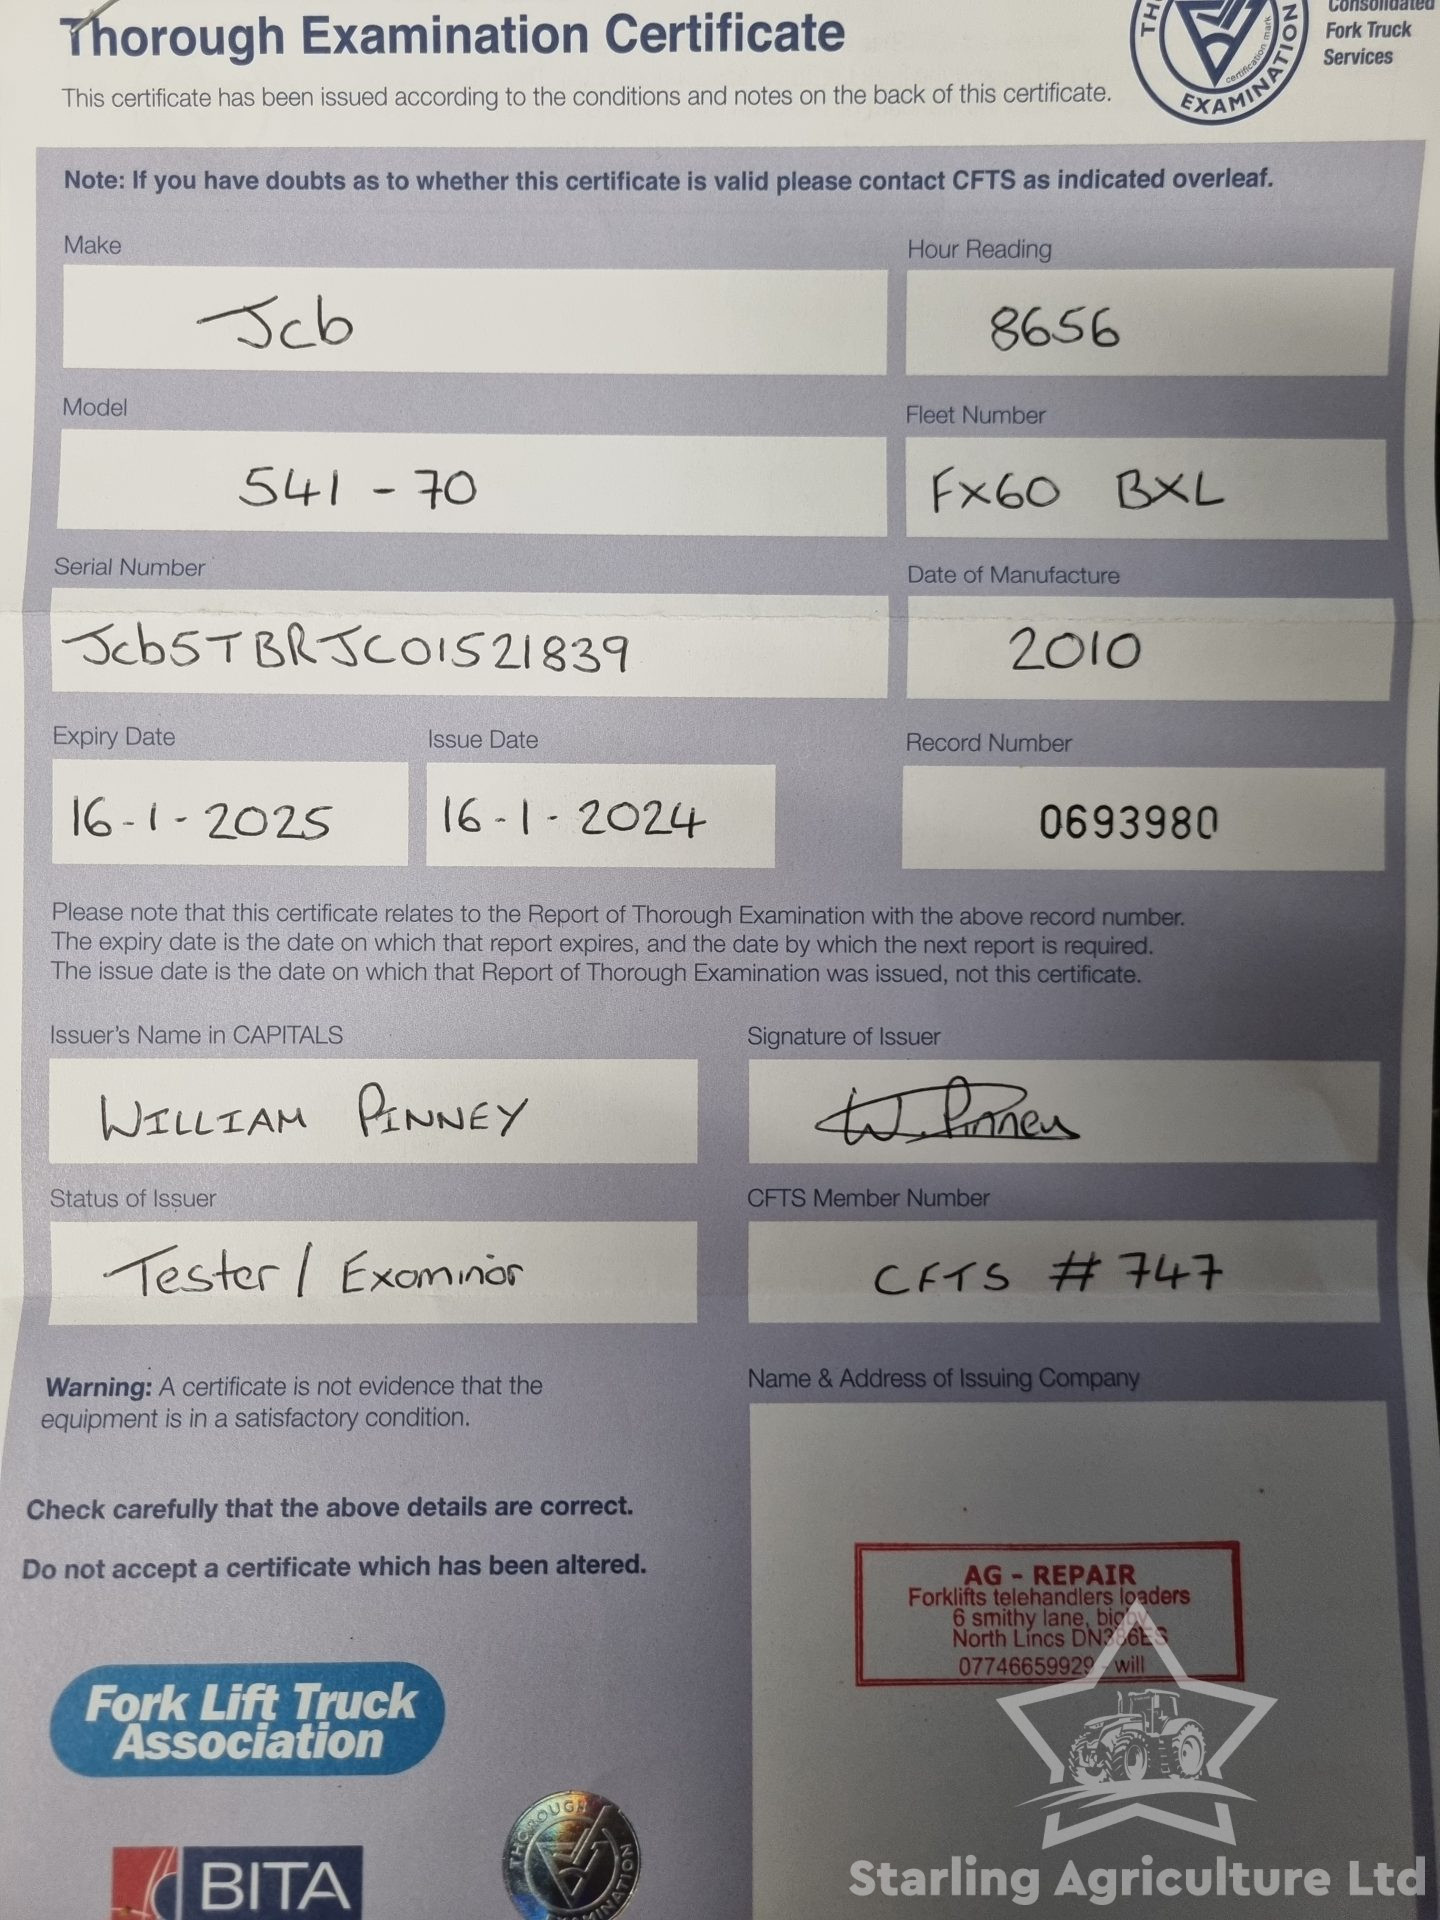 Thorough Examination Certificate
This certificate has been issued according to the conditions and notes on the back of this certificate.
Consolidated
Fork Truck
Services
certification mark
EXAMINATION
Note: If you have doubts as to whether this certificate is valid please contact CFTS as indicated overleaf.
Make
Hour Reading
Jcb
8656
Model
Fleet Number
541 - 70
FX60 BXL
Serial Number
Date of Manufacture
Jcb5TBRJC01521839
2010
Expiry Date
Issue Date
Record Number
16-1-2025
16-1-2024
0693980
Please note that this certificate relates to the Report of Thorough Examination with the above record number.
The expiry date is the date on which that report expires, and the date by which the next report is required.
The issue date is the date on which that Report of Thorough Examination was issued, not this certificate.
Issuer's Name in CAPITALS
Signature of Issuer
WILLIAM PINNEY
W. Pinney
Status of Issuer
CFTS Member Number
Tester / Examinor
CFTS # 747
Warning: A certificate is not evidence that the
equipment is in a satisfactory condition.
Name & Address of Issuing Company
Check carefully that the above details are correct.
Do not accept a certificate which has been altered.
AG - REPAIR
Forklifts telehandlers loaders
6 smithy lane, bigby
North Lincs DN386ES
07746659929 - will
Fork Lift Truck
Association
THOROUGH
EXAMINATION
BITA
Starling Agriculture Ltd